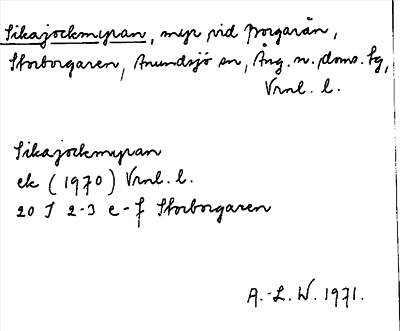 Sikajockmyran, myr vid Borgarån,
Storborgaren, Anundsjö sn, Ång. n. doms. lg,
Vrnl. l.
Sikajockmyran
ek (1970) Vrnl. l.
20 J 2-3 e-f Storborgaren
A.-L. W. 1971.